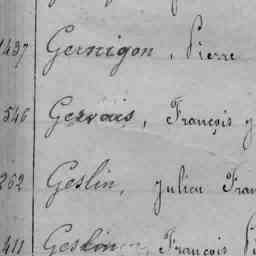 1437 Gernigon, Pierre
546 Gervais, François
262 Geslin, Julien Fran
411 Geslin, François